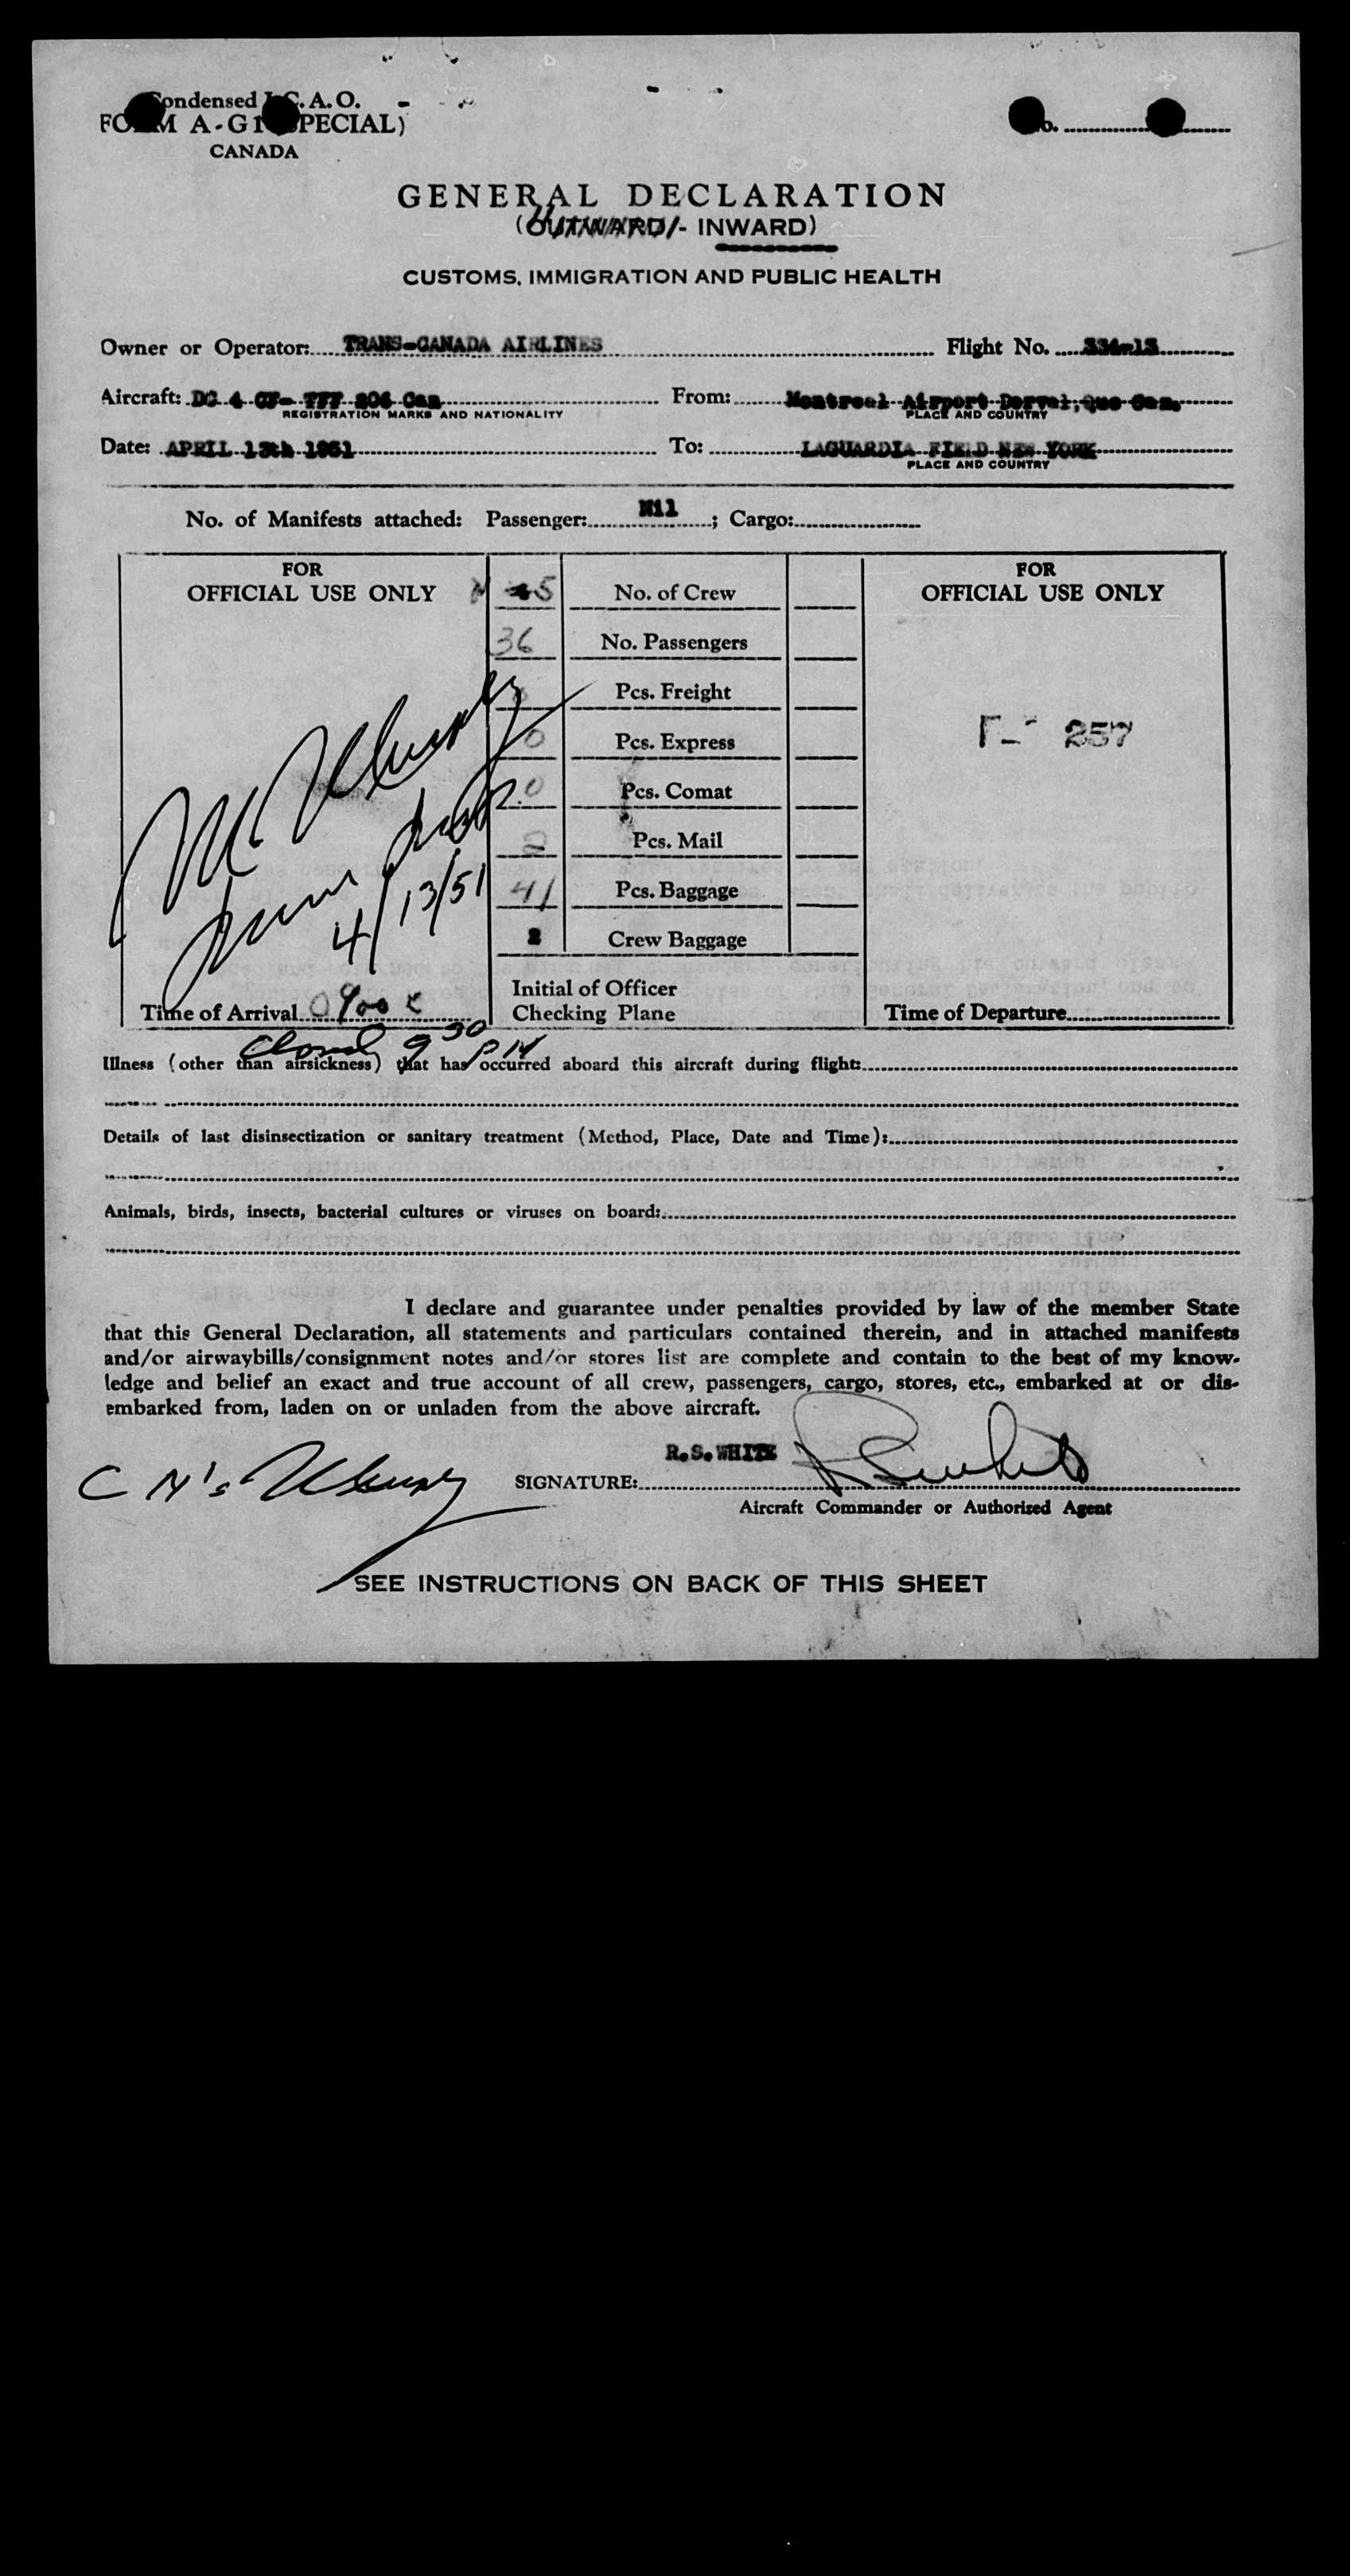 Condensed I.C.A.O.
FORM A-G1 (SPECIAL)
CANADA
No.
GENERAL DECLARATION
(OUTWARD/- INWARD)
CUSTOMS, IMMIGRATION AND PUBLIC HEALTH
Owner or Operator: TRANS-CANADA AIRLINES Flight No. 334-13
Aircraft: DC 4 CF- TFF 206 Can From: Montreal Airport Dorval, Que Can.
REGISTRATION MARKS AND NATIONALITY PLACE AND COUNTRY
Date: APRIL 13th 1951 To: LAGUARDIA FIELD NEW YORK
PLACE AND COUNTRY
No. of Manifests attached: Passenger: Nil ; Cargo:
FOR
OFFICIAL USE ONLY
5 No. of Crew
36 No. Passengers
Pcs. Freight
0 Pcs. Express
0 Pcs. Comat
Pcs. Mail
41 Pcs. Baggage
2 Crew Baggage
4/13/51
Time of Arrival 0900
Initial of Officer
Checking Plane
FOR
OFFICIAL USE ONLY
257
Time of Departure
9 30 PM
Illness (other than airsickness) that has occurred aboard this aircraft during flight:
Details of last disinsectization or sanitary treatment (Method, Place, Date and Time):
Animals, birds, insects, bacterial cultures or viruses on board:
I declare and guarantee under penalties provided by law of the member State
that this General Declaration, all statements and particulars contained therein, and in attached manifests
and/or airwaybills/consignment notes and/or stores list are complete and contain to the best of my know-
ledge and belief an exact and true account of all crew, passengers, cargo, stores, etc., embarked at or dis-
embarked from, laden on or unladen from the above aircraft.
R.S.WHITE
SIGNATURE:
Aircraft Commander or Authorized Agent
SEE INSTRUCTIONS ON BACK OF THIS SHEET